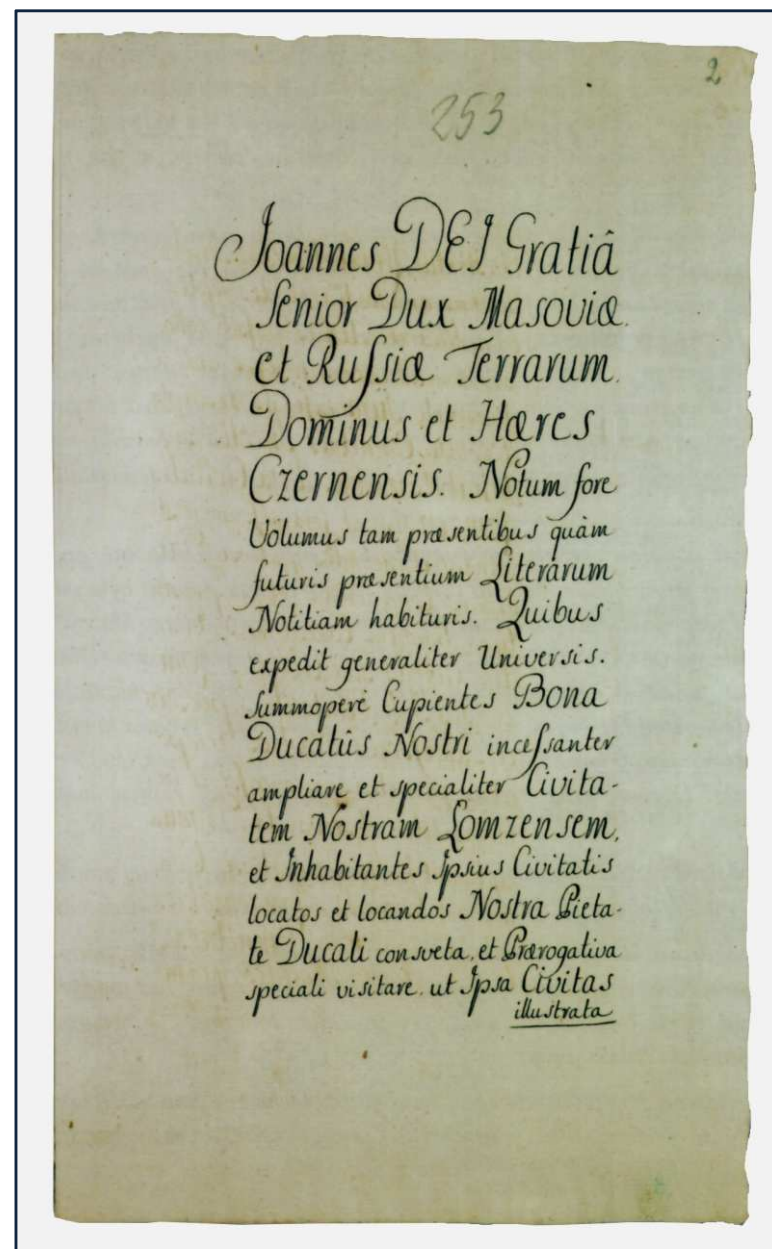 2
253
Joannes DEI Gratiâ
Senior Dux Masoviæ
et Ruſsiæ Terrarum
Dominus et Hæres
Czernensis. Notum fore
Volumus tam præsentibus quàm
futuris præsentium Literarum
Notitiam habituris. Quibus
expedit generaliter Universis.
Summoperè Cupientes Bona
Ducatûs Nostri inceſsanter
ampliare et specialiter Civita-
tem Nostram Lomzensem,
et Inhabitantes Ipsius Civitatis
locatos et locandos Nostra Pieta-
te Ducali consveta, et Prærogativa
speciali visitare, ut Ipsa Civitas
illustrata